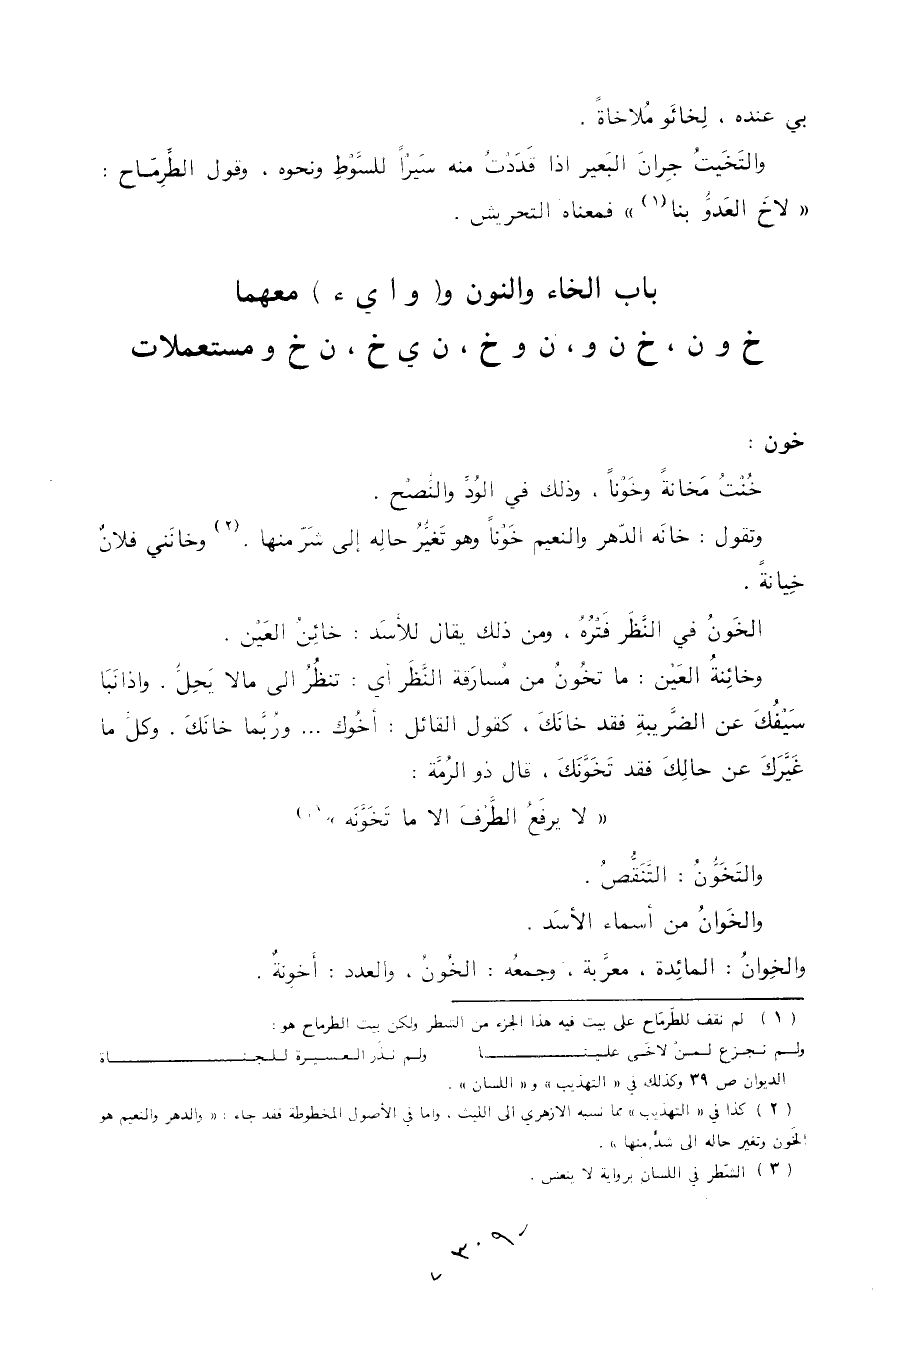 بي عنده ، لِخائَو مُلاخاةً .
والتَخَيتُ جِرانَ البَعير اذا قَدَدْتُ منه سَيَراً للسَّوْطِ ونحوه ، وقول الطِّرِمّاح :
« لاخَ العَدوُّ بنا(١) » فمعناه التحريش .
باب الخاء والنون و( و ا ي ء ) معهما
خ و ن ، خ ن و ، ن و خ ، ن ي خ ، ن خ و مستعملات
خون :
خُنْتُ مَخانةً وخَوْناً ، وذلك في الوُدِّ والنُصْح .
وتقول : خانَه الدّهر والنعيم خَوْناً وهو تَغيُّرُ حالِه إلى شَرّ منها .(٢) وخانَني فلانٌ
خِيانةً .
الخَونُ في النَّظَر فَتْرُهُ ، ومن ذلك يقال للأسَد : خائِنُ العَيْن .
وخائِنةُ العَيْن : ما تخُونُ من مُسارَقة النَّظَر أي : تنظُرُ الى مالا يَحِلُّ . واذانَبَا
سَيْفُكَ عن الضَّريبةِ فقد خانَكَ ، كقول القائل : أخُوك ... ورُبَّما خانَكَ . وكلُّ ما
غَيَّرَكَ عن حالِكَ فقد تَخَوَّنَكَ ، قال ذو الرُمَّة :
« لا يرفَعُ الطَّرْفَ الا ما تَخَوَّنَه »
والتَخَوُّنُ : التَّنَقُّصُ .
والخَوانُ من أسماء الأسَد .
والخِوانُ : المائِدة ، معرَّبة ، وجمعُه : الخُونُ ، والعدد : أخوِنةٌ .
( ١ ) لم نقف للطّرمّاح على بيت فيه هذا الجزء من الشطر ولكن بيت الطرماح هو :
ولـم نـجـزع لـمـنْ لاخَـى علـيـنـــا ولـم نـذَر العـشـيـرة للـجـنـــاة
الديوان ص ٣٩ وكذلك في « التهذيب » و« اللسان » .
( ٢ ) كذا في « التهذيب » مما نسبه الازهري الى الليث ، واما في الأصول المخطوطة فقد جاء : « والدهر والنعيم هو
الخَون وتغير حاله الى شدٍّ منها » .
( ٣ ) الشّطر في اللسان برواية لا ينعش .
٣٠٩